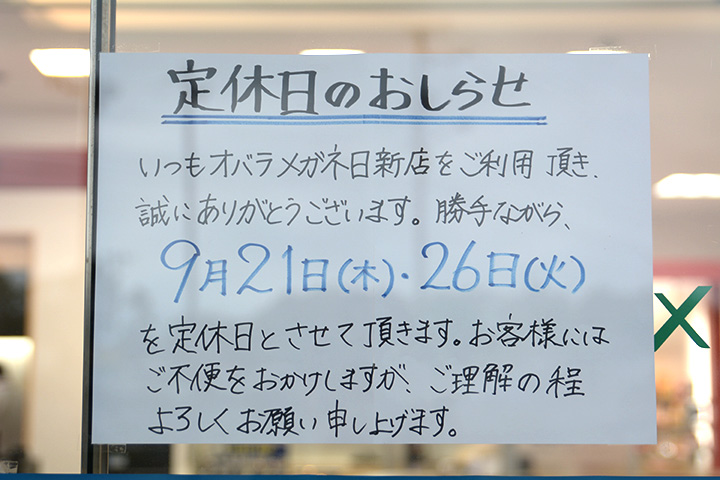 定休日のおしらせ
いつもオバラメガネ日新店をご利用頂き、
誠にありがとうございます。勝手ながら、
9月21日(木)・26日(火)
を定休日とさせて頂きます。お客様には
ご不便をおかけしますが、ご理解の程
よろしくお願い申し上げます。
X